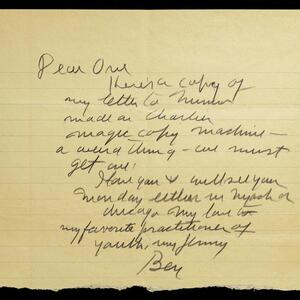 Dear One
Here's a copy of
my letter to
made on Charlie's
magic copy machine –
a weird thing – we must
get one.
I love you & will see you
Monday either in Nyack or
Chicago. My love to
my favorite practitioner of
youth, my Jenny
Ben